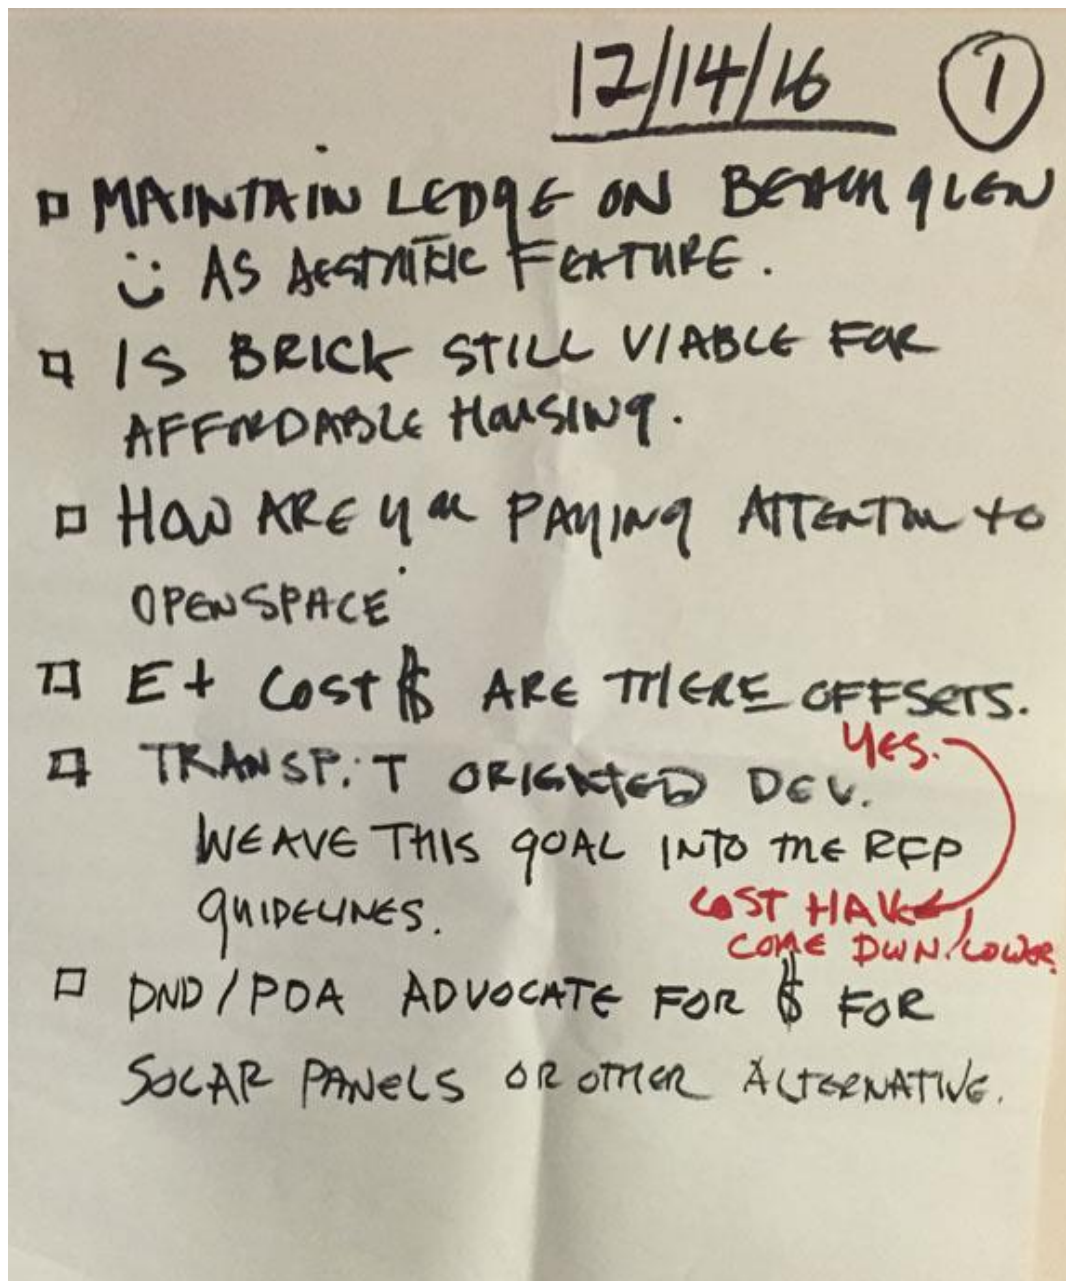 12/14/16 1
MAINTAIN LEDGE ON BEACH GLEN
AS AESTHETIC FEATURE.
IS BRICK STILL VIABLE FOR
AFFORDABLE HOUSING.
HOW ARE YOU PAYING ATTENTION TO
OPENSPACE
E+ COST $ ARE THERE OFFSETS.
YES.
TRANSP.T ORIENTED DEV.
WEAVE THIS GOAL INTO THE RFP
GUIDELINES.
COST HAVE
COME DWN/LOWER
DND/PDA ADVOCATE FOR $ FOR
SOLAR PANELS OR OTHER ALTERNATIVE.